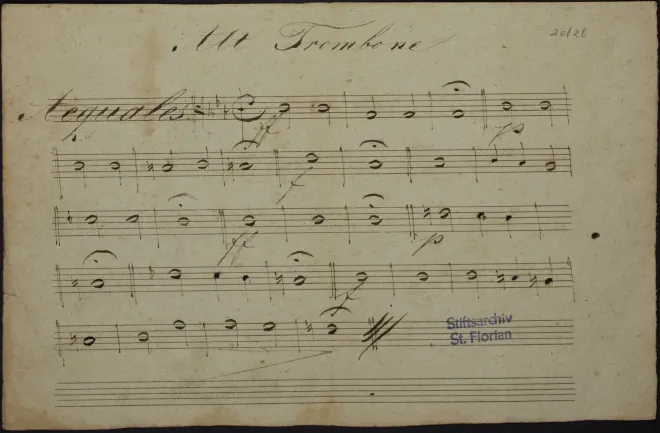 Alt Trombone
20/26
Aequales
ff
p
f
ff
p
f
Stiftsarchiv
St. Florian